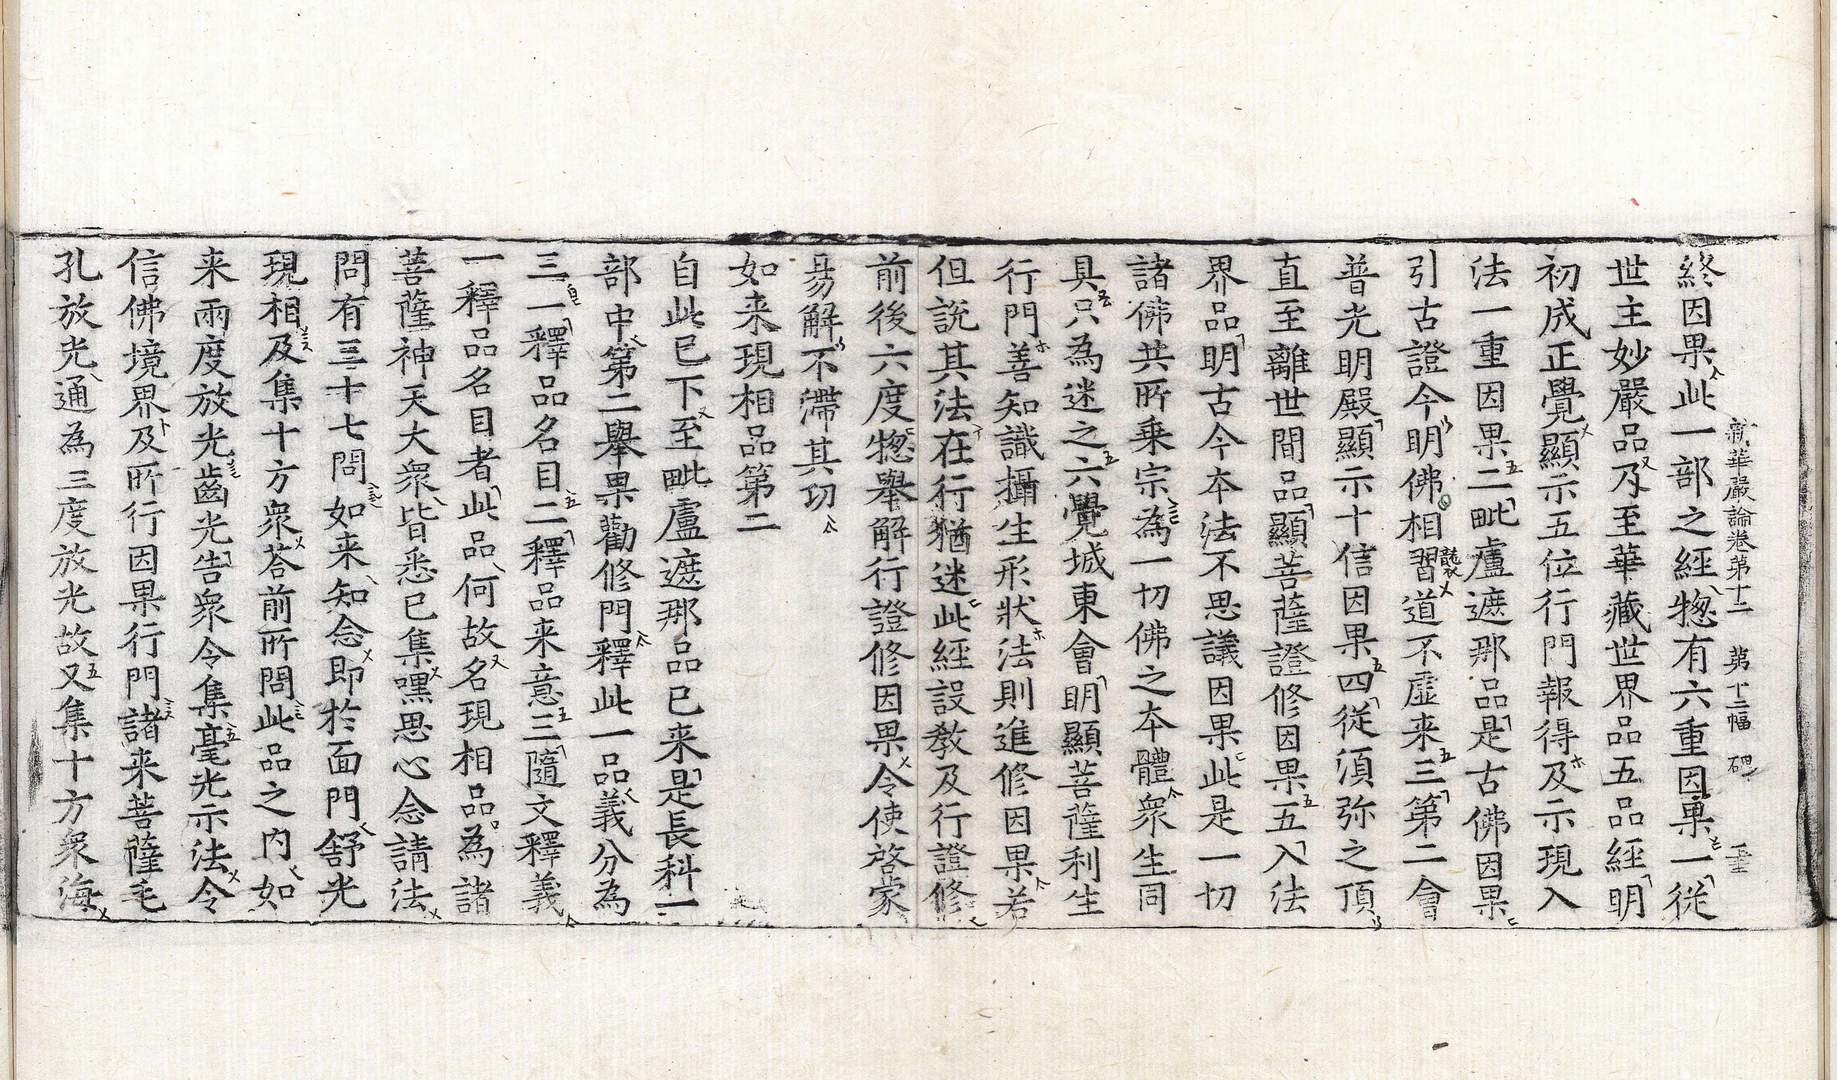 新華嚴論卷第十二 第十二幅
終因果此一部之經惣有六重因果一從
世主妙嚴品及至華藏世界品五品經明
初成正覺顯示五位行門報得及示現入
法一重因果二毗盧遮那品是古佛因果
引古證今明佛相習道不虛来三第二會
普光明殿顯示十信因果四從湏弥之頂
直至離世間品顯菩薩證修因果五入法
界品明古今夲法不思議因果此是一切
諸佛共所乗宗為一切佛之夲體衆生同
具只為迷之六覺城東會明顯菩薩利生
行門善知識攝生形狀法則進修因果若
但說其法在行猶迷此經設教及行證修
前後六度惣舉解行證修因果令使啓蒙
易解不滯其功
如来現相品第二
自此已下至毗盧遮那品已来是長科一
部中第二舉果勸修門釋此一品義分為
三一釋品名目二釋品来意三隨文釋義
一釋品名目者此品何故名現相品為諸
菩薩神天大衆皆悉已集嘿思心念請法
問有三十七問如来知念即於面門舒光
現相及集十方衆荅前所問此品之内如
来兩度放光齒光告衆令集毫光示法令
信佛境界及所行因果行門諸来菩薩毛
孔放光通為三度放光故又集十方衆海